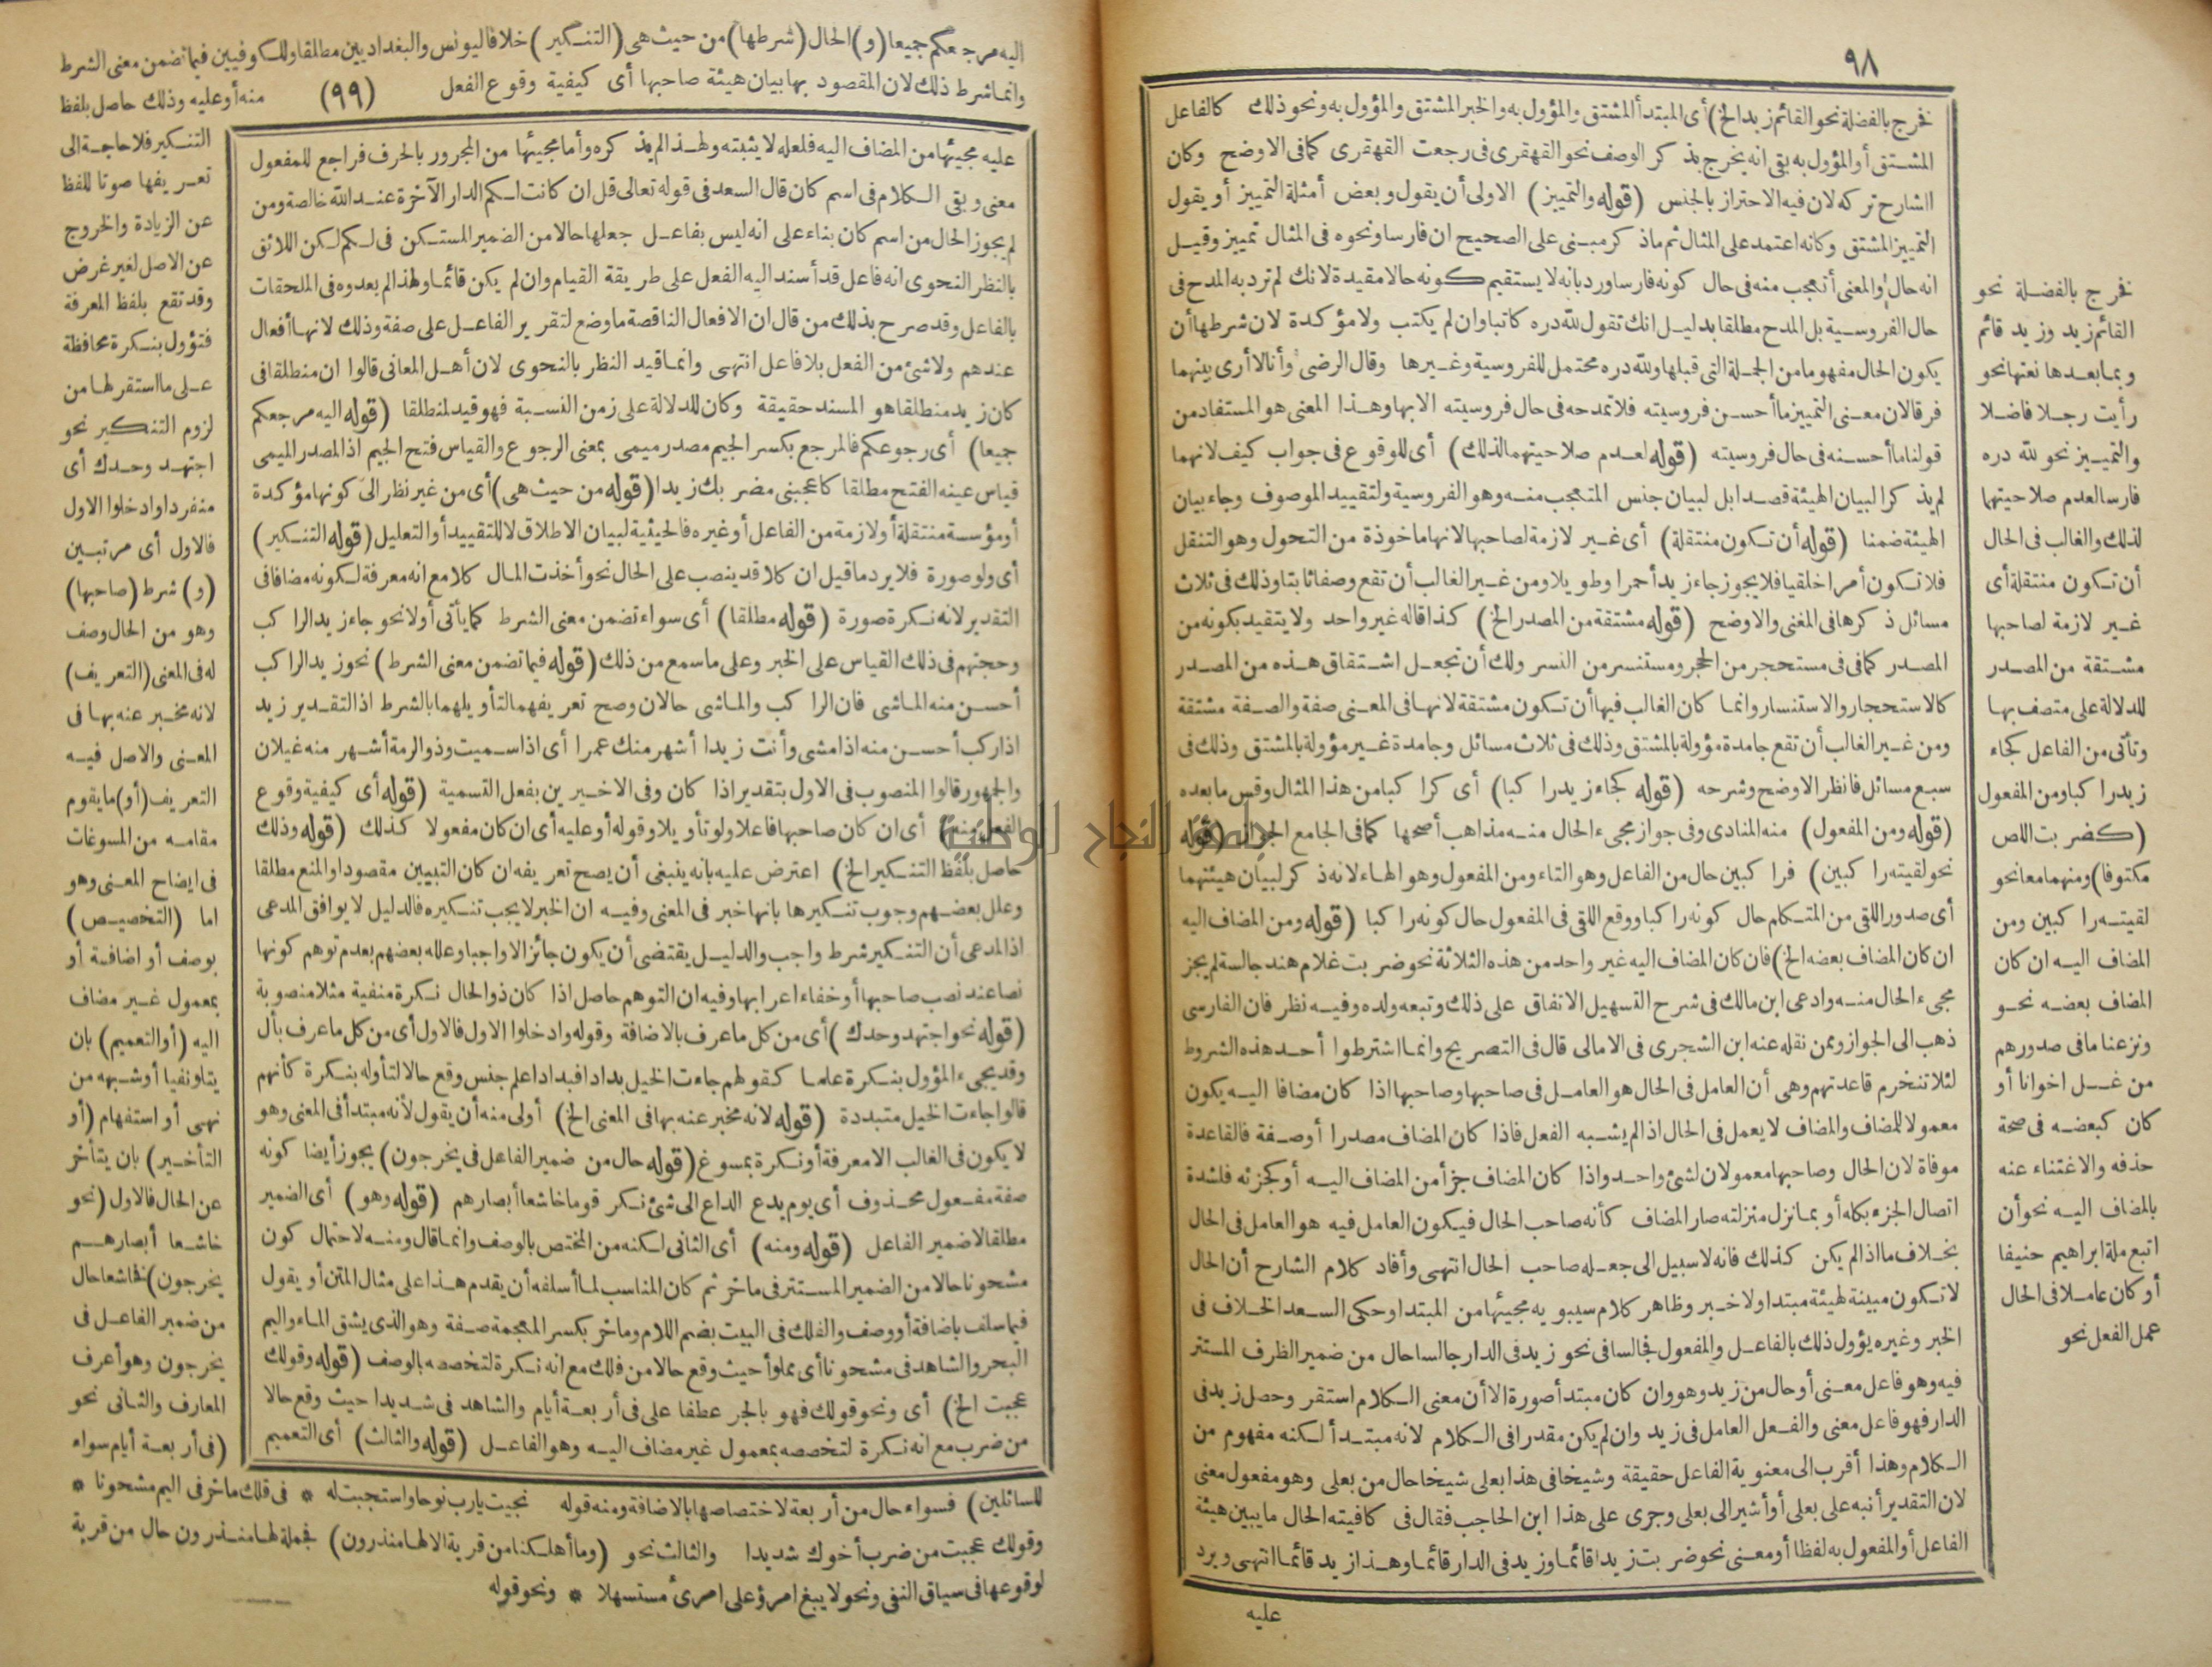 ٩٨
فخرج بالفضلة نحو القائم زيد الخ) أى المبتدأ المشتق والمؤول به والخبر المشتق والمؤول به ونحو ذلك كالفاعل
المشتق أو المؤول به بقى انه يخرج بذكر الوصف نحو القهقرى فى رجعت القهقرى كما فى الاوضح وكان
الشارح تركه لان فيه الاحتراز بالجنس (قوله والتمييز) الاولى أن يقول وبعض أمثلة التمييز أو يقول
التمييز المشتق وكانه اعتمد على المثال ثم ماذكر مبنى على الصحيح ان فارسا ونحوه فى المثال تمييز وقيل
انه حال والمعنى أتعجب منه فى حال كونه فارسا ورد بانه لا يستقيم كونه حالا مقيدة لانك لم ترد به المدح فى
حال الفروسية بل المدح مطلقا بدليل انك تقول لله دره كاتبا وان لم يكتب ولا مؤكدة لان شرطها أن
يكون الحال مفهوما من الجملة التى قبلها ولله دره محتمل للفروسية وغيرها وقال الرضى وأنا لا أرى بينهما
فرقا لان معنى التمييز ما أحسن فروسيته فلا تمدحه فى حال فروسيته الابها وهذا المعنى هو المستفاد من
قولنا ما أحسنه فى حال فروسيته (قوله لعدم صلاحيتهما لذلك) أى للوقوع فى جواب كيف لانهما
لم يذكرا لبيان الهيئة قصدا بل لبيان جنس المتعجب منه وهو الفروسية ولتقييد الموصوف وجاء بيان
الهيئة ضمنا (قوله أن تكون منتقلة) أى غير لازمة لصاحبها لانها مأخوذة من التحول وهو التنقل
فلا تكون أمرا خلقيا فلا يجوز جاء زيد أحمرا وطويلا ومن غير الغالب أن تقع وصفا ثابتا وذلك فى ثلاث
مسائل ذكرها فى المغنى والاوضح (قوله مشتقة من المصدر الخ) كذا قاله غير واحد ولا يتقيد بكونه من
المصدر كما فى مستحجر من الحجر ومستنسر من النسر ولك أن تجعل اشتقاق هذه من المصدر
كالاستحجار والاستنسار وانما كان الغالب فيها أن تكون مشتقة لانها فى المعنى صفة والصفة مشتقة
ومن غير الغالب أن تقع جامدة مؤولة بالمشتق وذلك فى ثلاث مسائل وجامدة غير مؤولة بالمشتق وذلك فى
سبع مسائل فانظر الاوضح وشرحه (قوله كجاء زيد راكبا) أى كراكبا من هذا المثال وقس مابعده
(قوله ومن المفعول) منه المنادى وفى جواز مجىء الحال منه مذاهب أصحها كما فى الجامع (قوله
نحو لقيته راكبين) فراكبين حال من الفاعل وهو التاء ومن المفعول وهو الهاء لانه ذكر لبيان هيئتهما
أى صدور اللقى من المتكلم حال كونه راكبا ووقع اللقى فى المفعول حال كونه راكبا (قوله ومن المضاف اليه
ان كان المضاف بعضه الخ) فان كان المضاف اليه غير واحد من هذه الثلاثة نحو ضربت غلام هند جالسة لم يجز
مجىء الحال منه وادعى ابن مالك فى شرح التسهيل الاتفاق على ذلك وتبعه ولده وفيه نظر فان الفارسى
ذهب الى الجواز وممن نقله عنه ابن الشجرى فى الامالى قال فى التصريح وانما اشترطوا أحد هذه الشروط
لئلا تنخرم قاعدتهم وهى أن العامل فى الحال هو العامل فى صاحبها وصاحبها اذا كان مضافا اليه يكون
معمولا للمضاف والمضاف لا يعمل فى الحال اذا لم يشبه الفعل فاذا كان المضاف مصدرا أو صفة فالقاعدة
موفاة لان الحال وصاحبها معمولان لشئ واحد واذا كان المضاف جزأ من المضاف اليه أو كجزئه فلشدة
اتصال الجزء بكله أو بما نزل منزلته صار المضاف كأنه صاحب الحال فيكون العامل فيه هو العامل فى الحال
بخلاف ما اذا لم يكن كذلك فانه لا سبيل الى جعله صاحب الحال انتهى وأفاد كلام الشارح أن الحال
لا تكون مبينة لهيئة مبتدا ولا خبر وظاهر كلام سيبويه مجيئها من المبتدا وحكى السعد الخلاف فى
الخبر وغيره يؤول ذلك بالفاعل والمفعول فجالسا فى نحو زيد فى الدار جالسا حال من ضمير الظرف المستتر
فيه وهو فاعل معنى أو حال من زيد وهو وان كان مبتدأ صورة الا أن معنى الكلام استقر وحصل زيد فى
الدار فهو فاعل معنى والفعل العامل فى زيد وان لم يكن مقدرا فى الكلام لانه مبتدأ لكنه مفهوم من
الكلام وهذا أقرب الى معنوية الفاعل حقيقة وشيخا فى هذا بعلى شيخا حال من بعلى وهو مفعول معنى
لان التقدير أنبه على بعلى أو أشير الى بعلى وجرى على هذا ابن الحاجب فقال فى كافيته الحال مايبين هيئة
الفاعل أو المفعول به لفظا أو معنى نحو ضربت زيدا قائما وزيد فى الدار قائما وهذا زيد قائما انتهى ويرد
عليه
فخرج بالفضلة نحو
القائم زيد وزيد قائم
وبما بعدها نعتها نحو
رأيت رجلا فاضلا
والتمييز نحو لله دره
فارسا لعدم صلاحيتهما
لذلك والغالب فى الحال
أن تكون منتقلة أى
غير لازمة لصاحبها
مشتقة من المصدر
للدلالة على متصف بها
وتأتى من الفاعل كجاء
زيد راكبا ومن المفعول
(كضربت اللص
مكتوفا) ومنهما معا نحو
لقيته راكبين ومن
المضاف اليه ان كان
المضاف بعضه نحو
ونزعنا مافى صدورهم
من غل اخوانا أو
كان كبعضه فى صحة
حذفه والاغتناء عنه
بالمضاف اليه نحو أن
اتبع ملة ابراهيم حنيفا
أو كان عاملا فى الحال
عمل الفعل نحو
اليه مرجعكم جميعا (و) الحال (شرطها) من حيث هى (التنكير) خلافا ليونس والبغداديين مطلقا وللكوفيين فيما تضمن معنى الشرط
وانما شرط ذلك لان المقصود بها بيان هيئة صاحبها أى كيفية وقوع الفعل (٩٩) منه أو عليه وذلك حاصل بلفظ
التنكير فلا حاجة الى
تعريفها صونا للفظ
عن الزيادة والخروج
عن الاصل لغير غرض
وقد تقع بلفظ المعرفة
فتؤول بنكرة محافظة
على ما استقر لها من
لزوم التنكير نحو
اجتهد وحدك أى
منفردا وادخلوا الاول
فالاول أى مرتبين
(و) شرط (صاحبها)
وهو من الحال وصف
له فى المعنى (التعريف)
لانه مخبر عنه بها فى
المعنى والاصل فيه
التعريف (أو) ما يقوم
مقامه من المسوغات
فى ايضاح المعنى وهو
اما (التخصيص)
بوصف أو اضافة أو
بمعمول غير مضاف
اليه (أو التعميم) بان
يتلو نفيا أو شبهه من
نهى أو استفهام (أو
التأخير) بان يتأخر
عن الحال فالاول (نحو
خاشعا أبصارهم
يخرجون) فخاشعا حال
من ضمير الفاعل فى
يخرجون وهو أعرف
المعارف والثانى نحو
(فى أربعة أيام سواء
عليه مجيئها من المضاف اليه فلعله لا يثبته ولهذا لم يذكره وأما مجيئها من المجرور بالحرف فراجع للمفعول
معنى وبقى الكلام فى اسم كان قال السعد فى قوله تعالى قل ان كانت لكم الدار الآخرة عند الله خالصة ومن
لم يجوز الحال من اسم كان بناء على انه ليس بفاعل جعلها حالا من الضمير المستكن فى لكم لكن اللائق
بالنظر النحوى انه فاعل قد أسند اليه الفعل على طريقة القيام وان لم يكن قائما ولهذا لم يعدوه فى الملحقات
بالفاعل وقد صرح بذلك من قال ان الافعال الناقصة ما وضع لتقرير الفاعل على صفة وذلك لانها أفعال
عندهم ولا شئ من الفعل بلا فاعل انتهى وانما قيد النظر بالنحوى لان أهل المعانى قالوا ان منطلقا فى
كان زيد منطلقا هو المسند حقيقة وكان للدلالة على زمن النسبة فهو قيد لمنطلقا (قوله اليه مرجعكم
جميعا) أى رجوعكم فالمرجع بكسر الجيم مصدر ميمى بمعنى الرجوع والقياس فتح الجيم اذ المصدر الميمى
قياس عينه الفتح مطلقا كأعجبنى مضربك زيدا (قوله من حيث هى) أى من غير نظر الى كونها مؤكدة
أو مؤسسة منتقلة أو لازمة من الفاعل أو غيره فالحيثية لبيان الاطلاق لا للتقييد أو التعليل (قوله التنكير)
أى ولو صورة فلا يرد ما قيل ان كلا قد ينصب على الحال نحو أخذت المال كلا مع انه معرفة لكونه مضافا فى
التقدير لانه نكرة صورة (قوله مطلقا) أى سواء تضمن معنى الشرط كما يأتى أو لا نحو جاء زيد الراكب
وحجتهم فى ذلك القياس على الخبر وعلى ما سمع من ذلك (قوله فيما تضمن معنى الشرط) نحو زيد الراكب
أحسن منه الماشى فان الراكب والماشى حالان وصح تعريفهما لتأويلهما بالشرط اذ التقدير زيد
اذا ركب أحسن منه اذا مشى وأنت زيدا أشهر منك عمرا أى اذا سميت وذو الرمة أشهر منه غيلان
والجمهور قالوا المنصوب فى الاول بتقدير اذا كان وفى الاخيرين بفعل التسمية (قوله أى كيفية وقوع
الفعل منه) أى ان كان صاحبها فاعلا ولو تأويلا وقوله أو عليه أى ان كان مفعولا كذلك (قوله وذلك
حاصل بلفظ التنكير الخ) اعترض عليه بانه ينبغى أن يصح تعريفه ان كان التبيين مقصودا والمنع مطلقا
وعلل بعضهم وجوب تنكيرها بانها خبر فى المعنى وفيه ان الخبر لا يجب تنكيره فالدليل لا يوافق المدعى
اذ المدعى أن التنكير شرط واجب والدليل يقتضى أن يكون جائزا لا واجبا وعلله بعضهم بعدم توهم كونها
نصا عند نصب صاحبها أو خفاء اعرابها وفيه ان التوهم حاصل اذا كان ذو الحال نكرة منفية مثلا منصوبة
(قوله نحو اجتهد وحدك) أى من كل ما عرف بالاضافة وقوله وادخلوا الاول فالاول أى من كل ما عرف بأل
وقد يجىء المؤول بنكرة علما كقولهم جاءت الخيل بداد فبداد اعلم جنس وقع حالا لتأوله بنكرة كأنهم
قالوا جاءت الخيل متبددة (قوله لانه مخبر عنه بها فى المعنى الخ) أولى منه أن يقول لأنه مبتدأ فى المعنى وهو
لا يكون فى الغالب الا معرفة أو نكرة بمسوغ (قوله حال من ضمير الفاعل فى يخرجون) يجوز أيضا كونه
صفة مفعول محذوف أى يوم يدع الداع الى شئ نكر قوما خاشعا أبصارهم (قوله وهو) أى الضمير
مطلقا لا ضمير الفاعل (قوله ومنه) أى الثانى لكنه من المختص بالوصف وانما قال ومنه لاحتمال كون
مشحونا حالا من الضمير المستتر فى ماخر ثم كان المناسب لما أسلفه أن يقدم هذا على مثال المتن أو يقول
فيما سلف باضافة أو وصف والفلك فى البيت بضم اللام وماخر بكسر المعجمة صفة وهو الذى يشق الماء واليم
البحر والشاهد فى مشحونا أى مملوأ حيث وقع حالا من فلك مع انه نكرة لتخصصه بالوصف (قوله وقولك
عجبت الخ) أى ونحو قولك فهو بالجر عطفا على فى أربعة أيام والشاهد فى شديدا حيث وقع حالا
من ضرب مع انه نكرة لتخصصه بمعمول غير مضاف اليه وهو الفاعل (قوله والثالث) أى التعميم
للسائلين) فسواء حال من أربعة لاختصاصها بالاضافة ومنه قوله نجيت يارب نوحا واستجبت له * فى فلك ماخر فى اليم مشحونا *
وقولك عجبت من ضرب أخوك شديدا والثالث نحو (وما أهلكنا من قرية الا لها منذرون) فجملة لها منذرون حال من قرية
لوقوعها فى سياق النفى ونحو لا يبغ امرؤ على امرئ مستسهلا * ونحو قوله
جامعة النجاح الوطنية